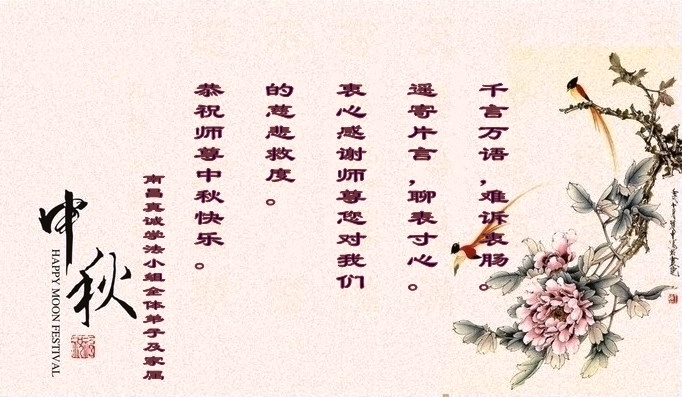 千言万语，难诉衷肠。
遥寄片言，聊表寸心。
衷心感谢师尊您对我们
的慈悲救度。
恭祝师尊中秋快乐。
南昌真诚学法小组全体弟子及家属
中秋
HAPPY MOON FESTIVAL